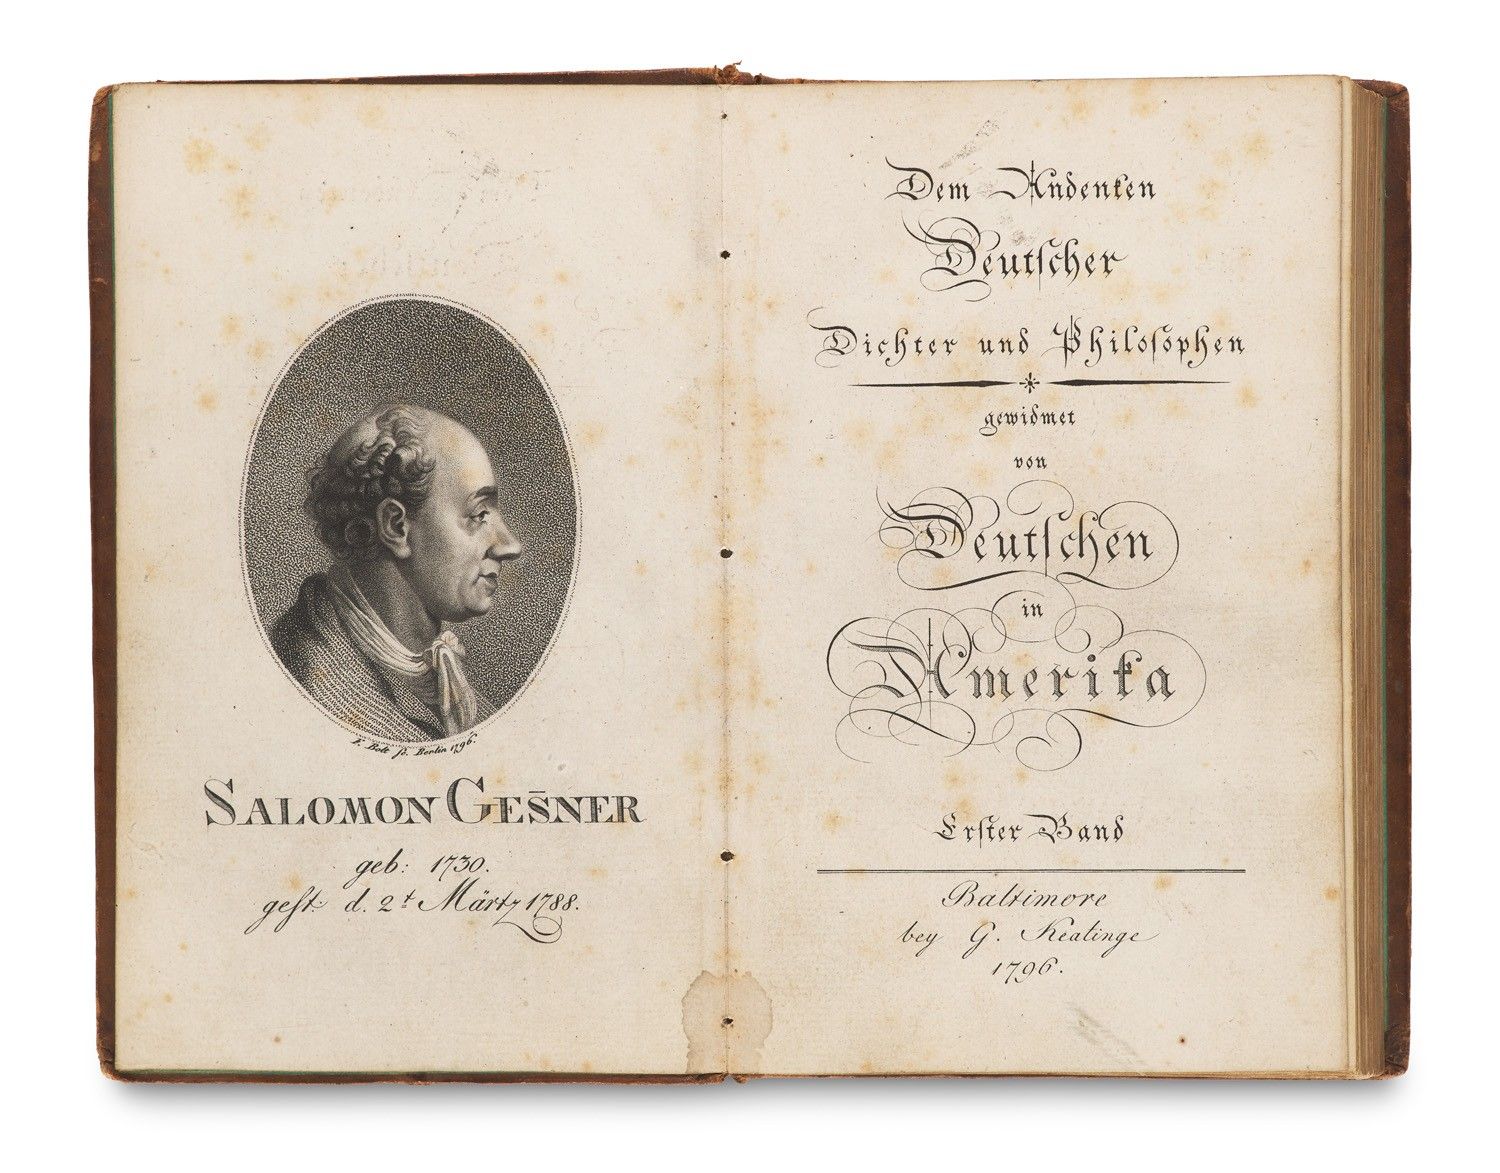 F. Bolt sc. Berlin 1796.
SALOMON GES̄NER
geb: 1730.
gest: d. 2t Märtz 1788.
Dem Andenken
Deutſcher
Dichter und Philoſophen
gewidmet
von
Deutſchen
in
Amerika
Erſter Band
Baltimore
bey G. Keatinge
1796.